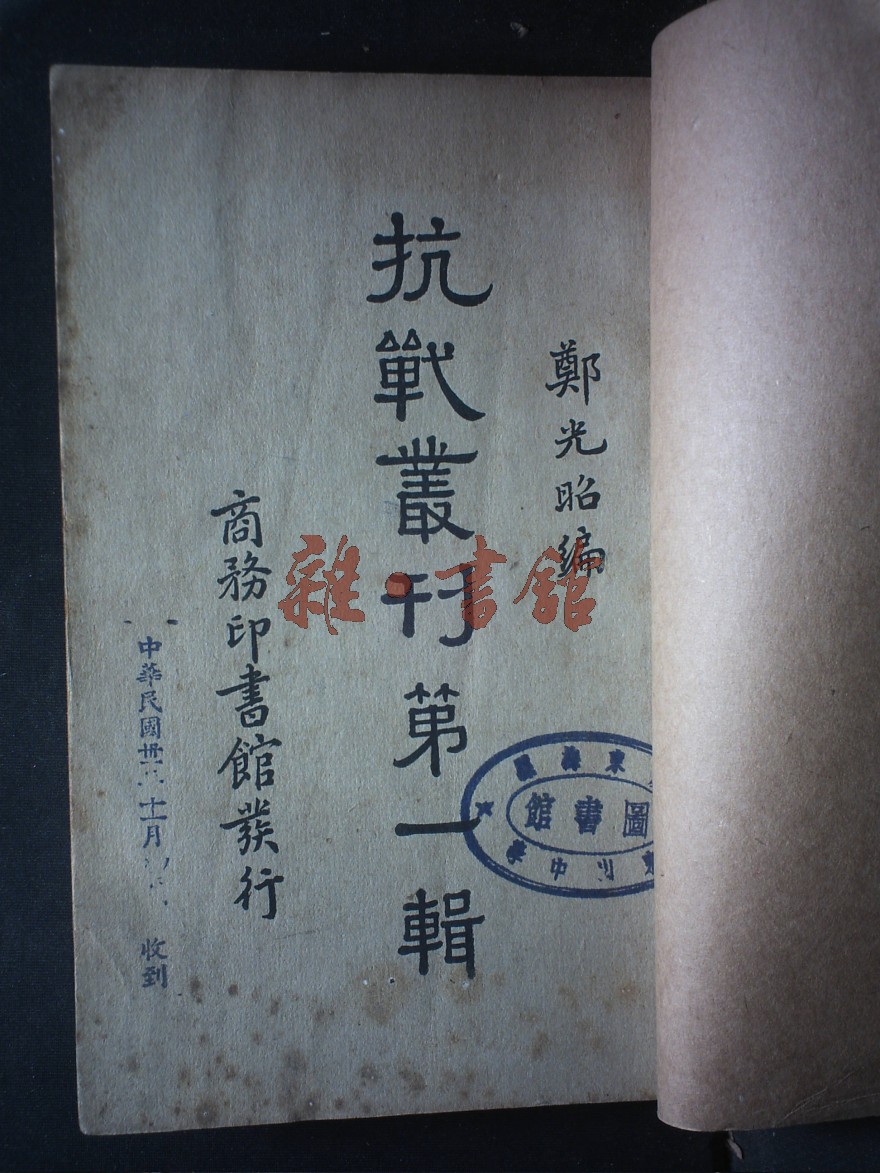 鄭光昭編
抗戰叢刊第一輯
商務印書館發行
中華民國卅 十一月
收到
圖書館
東海
中學
雜·書館